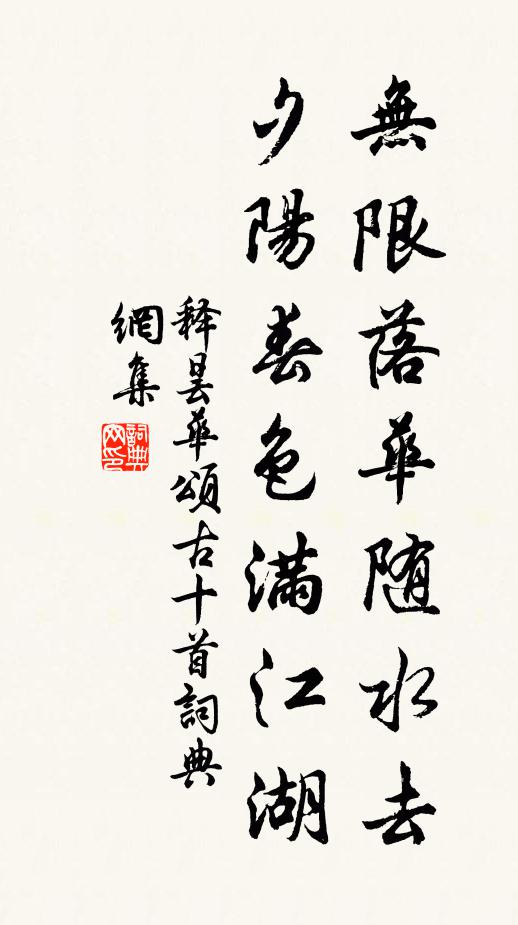 無限落華随水去
夕陽春色滿江湖
釋曇華頌古十首詞典
網集
詞典
网印